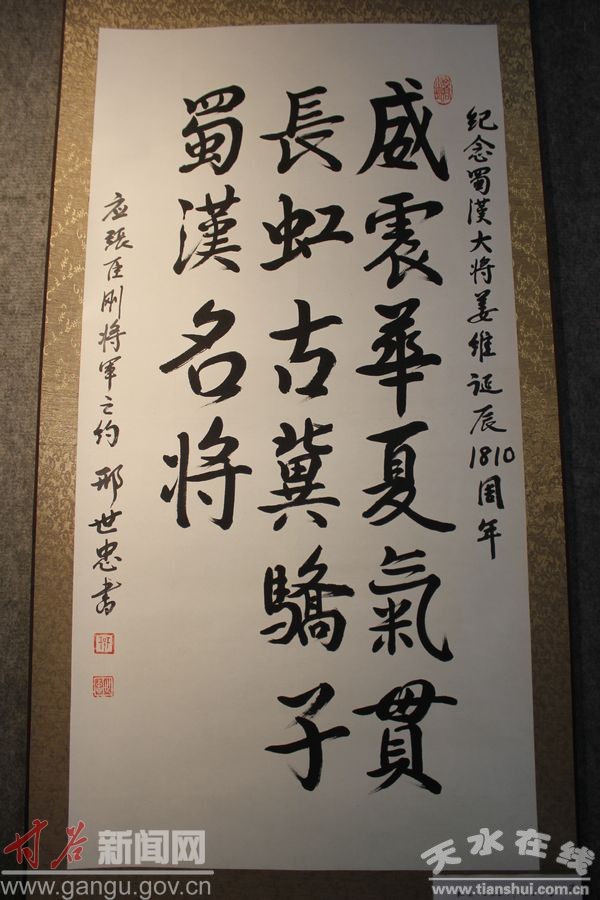 纪念蜀漢大将姜维诞辰1810周年
威震華夏氣貫
長虹古冀驕子
蜀漢名将
应張臣刚将軍之约 邢世忠書
甘谷新闻网
www.gangu.gov.cn
天水在线
www.tianshui.com.cn